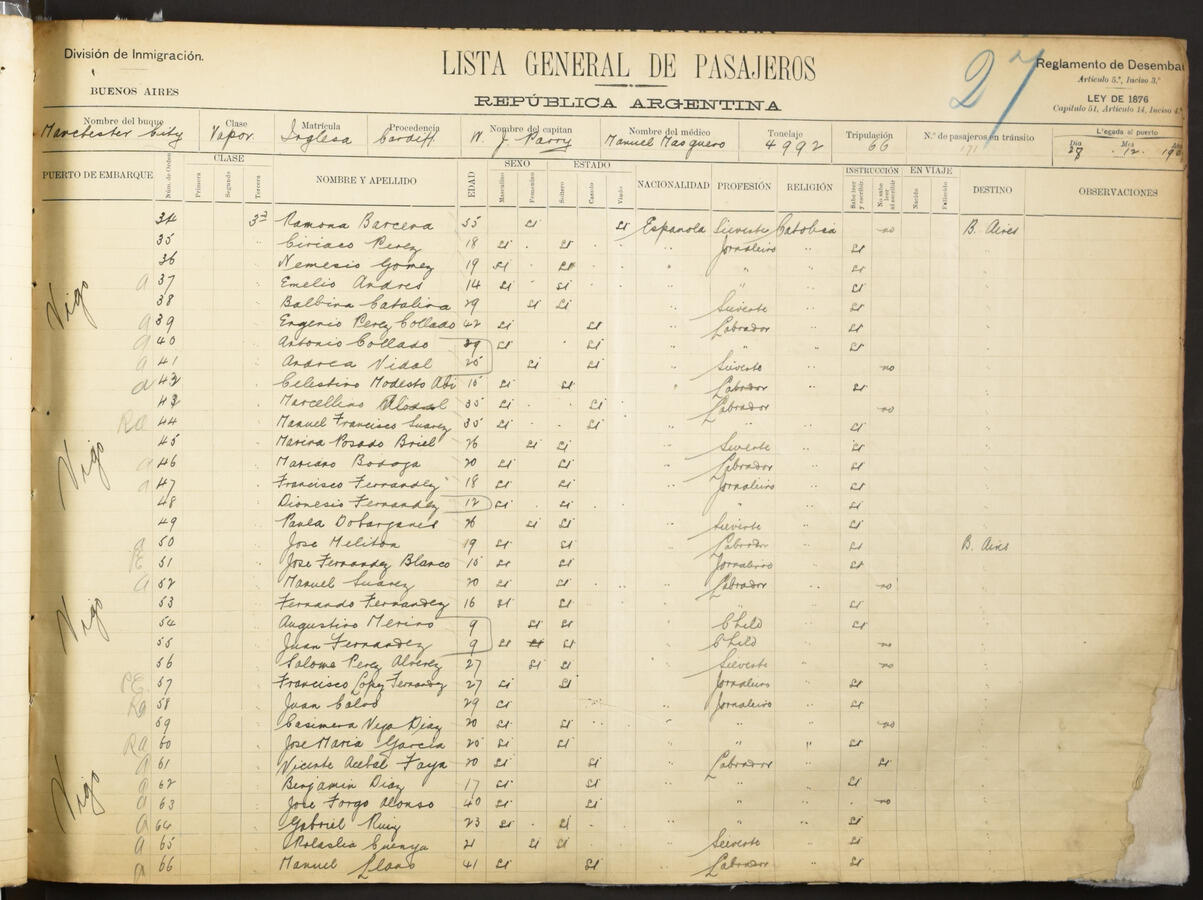 División de Inmigración.
BUENOS AIRES
LISTA GENERAL DE PASAJEROS
REPÚBLICA ARGENTINA
27
Reglamento de Desembar
Artículo 5.º, Inciso 3.º
LEY DE 1876
Capítulo 51, Artículo 14, Inciso 4.º
Nombre del buque Clase Matrícula Procedencia Nombre del capitan Nombre del médico Tonelaje Tripulación N.º de pasajeros en tránsito Llegada al puerto
Manchester City Vapor Inglesa Cardiff W. J. Parry Manuel Masquero 4992 66 171 Dia 28 Mes 12
PUERTO DE EMBARQUE Núm. de Orden CLASE Primera Segunda Tercera NOMBRE Y APELLIDO EDAD SEXO Masculino Femenino ESTADO Soltero Casado Viudo NACIONALIDAD PROFESIÓN RELIGIÓN INSTRUCCIÓN Sabe leer y escribir No sabe leer ni escribir EN VIAJE Nacido Fallecido DESTINO OBSERVACIONES
34 3ª Ramona Barcena 55 si si Española Sieverte Catolica no B. Aires
35 Ciriaco Perez 18 si si Jornaleiro si
36 Nemesio Gomez 19 si si " si
Vigo a 37 Emelio Andres 14 si si " si
38 Balbina Catalina 29 si si Sieverte si
a 39 Eugenio Perez Collado 42 si si Labrador si
a 40 Antonio Collado 29 si si " si
a 41 Andrea Vidal 25 si si Sieverte no
a 42 Celestino Modesto 15 si si Labrador si
43 Marcellino 35 si si Labrador no
Ra 44 Manuel Francisco Suarez 35 si si " si
45 Marina Posado Briel 26 si si Sieverte si
Vigo a 46 Mariano Bodoga 20 si si Labrador si
a 47 Francisco Fernandez 18 si si Jornaleiro si
48 Dionesio Fernandez 12 si si " si
49 Paula Dobarganes 26 si si Sieverte si
a 50 Jose Meliton 19 si si Labrador si B. Aires
RE 51 Jose Fernandez Blanco 15 si si Jornaleiro si
a 52 Manuel Suarez 20 si si Labrador no
53 Fernando Fernandez 16 si si " si
Vigo 54 Augustino Merino 9 si si Child si
55 Juan Fernandez 9 si si si Child no
56 Salome Perez Alverez 27 si si Sieverte no
RE 57 Francisco Lopez Fernandez 27 si si Jornaleiro si
Ra 58 Juan Calvo 29 si Jornaleiro si
59 Casimera Veja Diaz 20 si si " no
Ra 60 Jose Maria Garcia 25 si si " si
Vigo a 61 Vicente Acebal Faya 20 si si Labrador si
a 62 Benjamin Diaz 17 si si " si
a 63 Jose Forgo Alonso 40 si si " no
a 64 Gabriel Ruiz 23 si si " si
a 65 Cuenya 21 si si Sieverte si
a 66 Manuel Llano 41 si si Labrador si